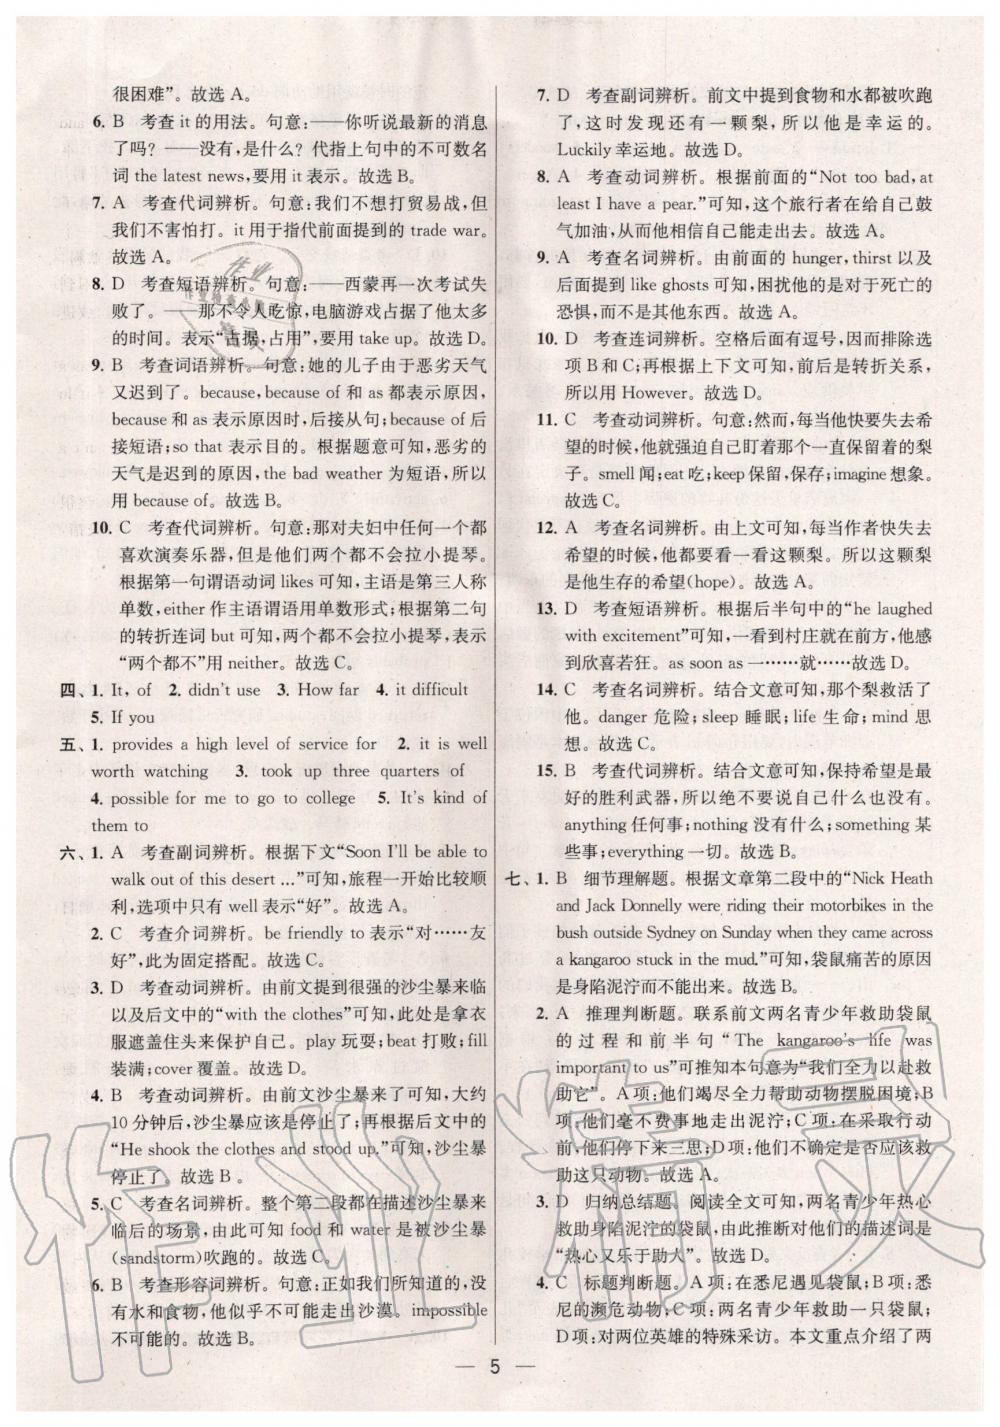 很困难”。故选 A。
6. B 考查 it 的用法。句意:——你听说最新的消息
了吗? ——没有,是什么? 代指上句中的不可数名
词 the latest news,要用 it 表示。故选 B。
7. A 考查代词辨析。句意:我们不想打贸易战,但
我们不害怕打。it 用于指代前面提到的 trade war。
故选 A。
8. D 考查短语辨析。句意:——西蒙再一次考试失
败了。——那不令人吃惊,电脑游戏占据了他太多
的时间。表示“占据,占用”,要用 take up。故选 D。
9. B 考查词语辨析。句意:她的儿子由于恶劣天气
又迟到了。because,because of 和 as 都表示原因,
because 和 as 表示原因时,后接从句;because of 后
接短语;so that 表示目的。根据题意可知,恶劣的
天气是迟到的原因,the bad weather 为短语,所以
用 because of。故选 B。
10. C 考查代词辨析。句意:那对夫妇中任何一个都
喜欢演奏乐器,但是他们两个都不会拉小提琴。
根据第一句谓语动词 likes 可知,主语是第三人称
单数,either 作主语谓语用单数形式;根据第二句
的转折连词 but 可知,两个都不会拉小提琴,表示
“两个都不”用 neither。故选 C。
四、1. It, of 2. didn't use 3. How far 4. it difficult
5. If you
五、1. provides a high level of service for 2. it is well
worth watching 3. took up three quarters of
4. possible for me to go to college 5. It's kind of
them to
六、1. A 考查副词辨析。根据下文“Soon I'll be able to
walk out of this desert ...”可知,旅程一开始比较顺
利,选项中只有 well 表示“好”。故选 A。
2. C 考查介词辨析。be friendly to 表示“对……友
好”,此为固定搭配。故选 C。
3. D 考查动词辨析。由前文提到很强的沙尘暴来临
以及后文中的“with the clothes”可知,此处是拿衣
服遮盖住头来保护自己。play 玩耍;beat 打败;fill
装满;cover 覆盖。故选 D。
4. B 考查动词辨析。由前文沙尘暴来了可知,大约
10 分钟后,沙尘暴应该是停止了;再根据后文中的
“He shook the clothes and stood up.”可知,沙尘暴
停止了 故选 B。
5. C 考查名词辨析。整个第二段都在描述沙尘暴来
临后的场景,由此可知 food 和 water 是被沙尘暴
(sandstorm)吹跑的。故选 C。
6. B 考查形容词辨析。句意:正如我们所知道的,没
有水和食物,他似乎不可能走出沙漠。impossible
不可能的。故选 B。
7. D 考查副词辨析。前文中提到食物和水都被吹跑
了,这时发现还有一颗梨,所以他是幸运的。
Luckily 幸运地。故选 D。
8. A 考查动词辨析。根据前面的“Not too bad, at
least I have a pear.”可知,这个旅行者在给自己鼓
气加油,从而他相信自己能走出去。故选 A。
9. A 考查名词辨析。由前面的 hunger, thirst 以及
后面提到 like ghosts 可知,困扰他的是对于死亡的
恐惧,而不是其他东西。故选 A。
10. D 考查连词辨析。空格后面有逗号,因而排除选
项 B 和 C;再根据上下文可知,前后是转折关系,
所以用 However。故选 D。
11. C 考查动词辨析。句意:然而,每当他快要失去希
望的时候,他就强迫自己盯着那个一直保留着的梨
子。smell 闻;eat 吃;keep 保留,保存;imagine 想象。
故选 C。
12. A 考查名词辨析。由上文可知,每当作者快失去
希望的时候,他都要看一看这颗梨。所以这颗梨
是他生存的希望(hope)。故选 A。
13. D 考查短语辨析。根据后半句中的“he laughed
with excitement”可知,一看到村庄就在前方,他感
到欣喜若狂。as soon as 一……就……故选 D。
14. C 考查名词辨析。结合文意可知,那个梨救活了
他。danger 危险;sleep 睡眠;life 生命;mind 思
想。故选 C。
15. B 考查代词辨析。结合文意可知,保持希望是最
好的胜利武器,所以绝不要说自己什么也没有。
anything 任何事;nothing 没有什么;something 某
些事;everything 一切。故选 B。
七、1. B 细节理解题。根据文章第二段中的“Nick Heath
and Jack Donnelly were riding their motorbikes in the
bush outside Sydney on Sunday when they came across
a kangaroo stuck in the mud.”可知,袋鼠痛苦的原因
是身陷泥泞而不能出来。故选 B。
2. A 推理判断题。联系前文两名青少年救助袋鼠
的过程和前半句“The kangaroo's life was
important to us”可推知本句意为“我们全力以赴救
助它”。A 项:他们竭尽全力帮助动物摆脱困境;B
项:他们毫不费事地走出泥泞;C 项:在采取行动
前,他们停下来三思;D 项:他们不确定是否应该救
助这只动物。故选 A。
3. D 归纳总结题。阅读全文可知,两名青少年热心
救助身陷泥泞的袋鼠,由此推断对他们的描述词是
“热心又乐于助人”。故选 D。
4. C 标题判断题。A 项:在悉尼遇见袋鼠;B 项:悉
尼的濒危动物;C 项:两名青少年救助一只袋鼠;
D 项:对两位英雄的特殊采访。本文重点介绍了两
— 5 —
作业精灵